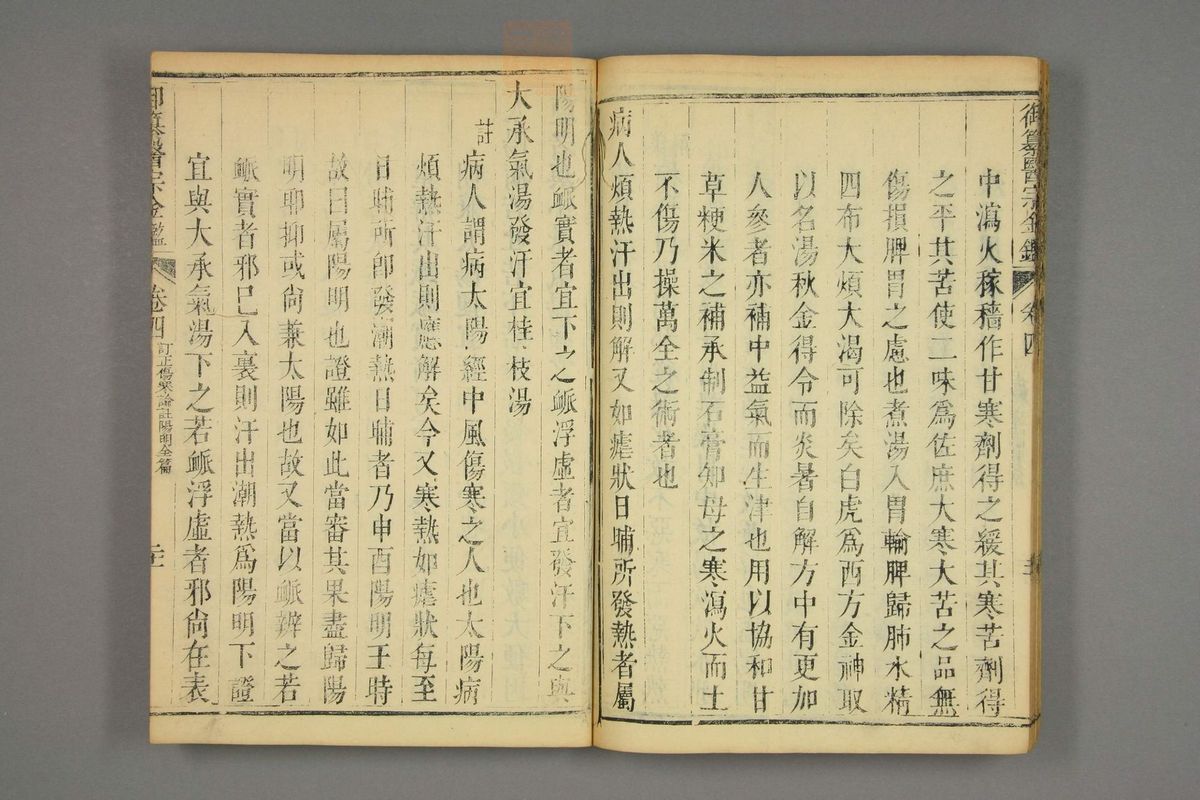 御纂醫宗金鑑 卷四
中瀉火稼穡作甘寒劑得之緩其寒苦劑得
之平其苦使二味為佐庶大寒大苦之品無
傷損脾胃之慮也煮湯入胃輸脾歸肺水精
四布大煩大渴可除矣白虎為西方金神取
以名湯秋金得令而炎暑自解方中有更加
人參者亦補中益氣而生津也用以協和甘
草粳米之補承制石膏知母之寒瀉火而土
不傷乃操萬全之術者也
病人煩熱汗出則解又如瘧狀日晡所發熱者屬
陽明也脈實者宜下之脈浮虛者宜發汗下之與
大承氣湯發汗宜桂枝湯
註病人謂病太陽經中風傷寒之人也太陽病
煩熱汗出則應解矣今又寒熱如瘧狀每至
日晡所卽發潮熱日晡者乃申酉陽明王時
故曰屬陽明也證雖如此當審其果盡歸陽
明耶抑或尙兼太陽也故又當以脈辨之若
脈實者邪已入裏則汗出潮熱為陽明下證
宜與大承氣湯下之若脈浮虛者邪尙在表
御纂醫宗金鑑 卷四 訂正傷寒論註陽明全篇